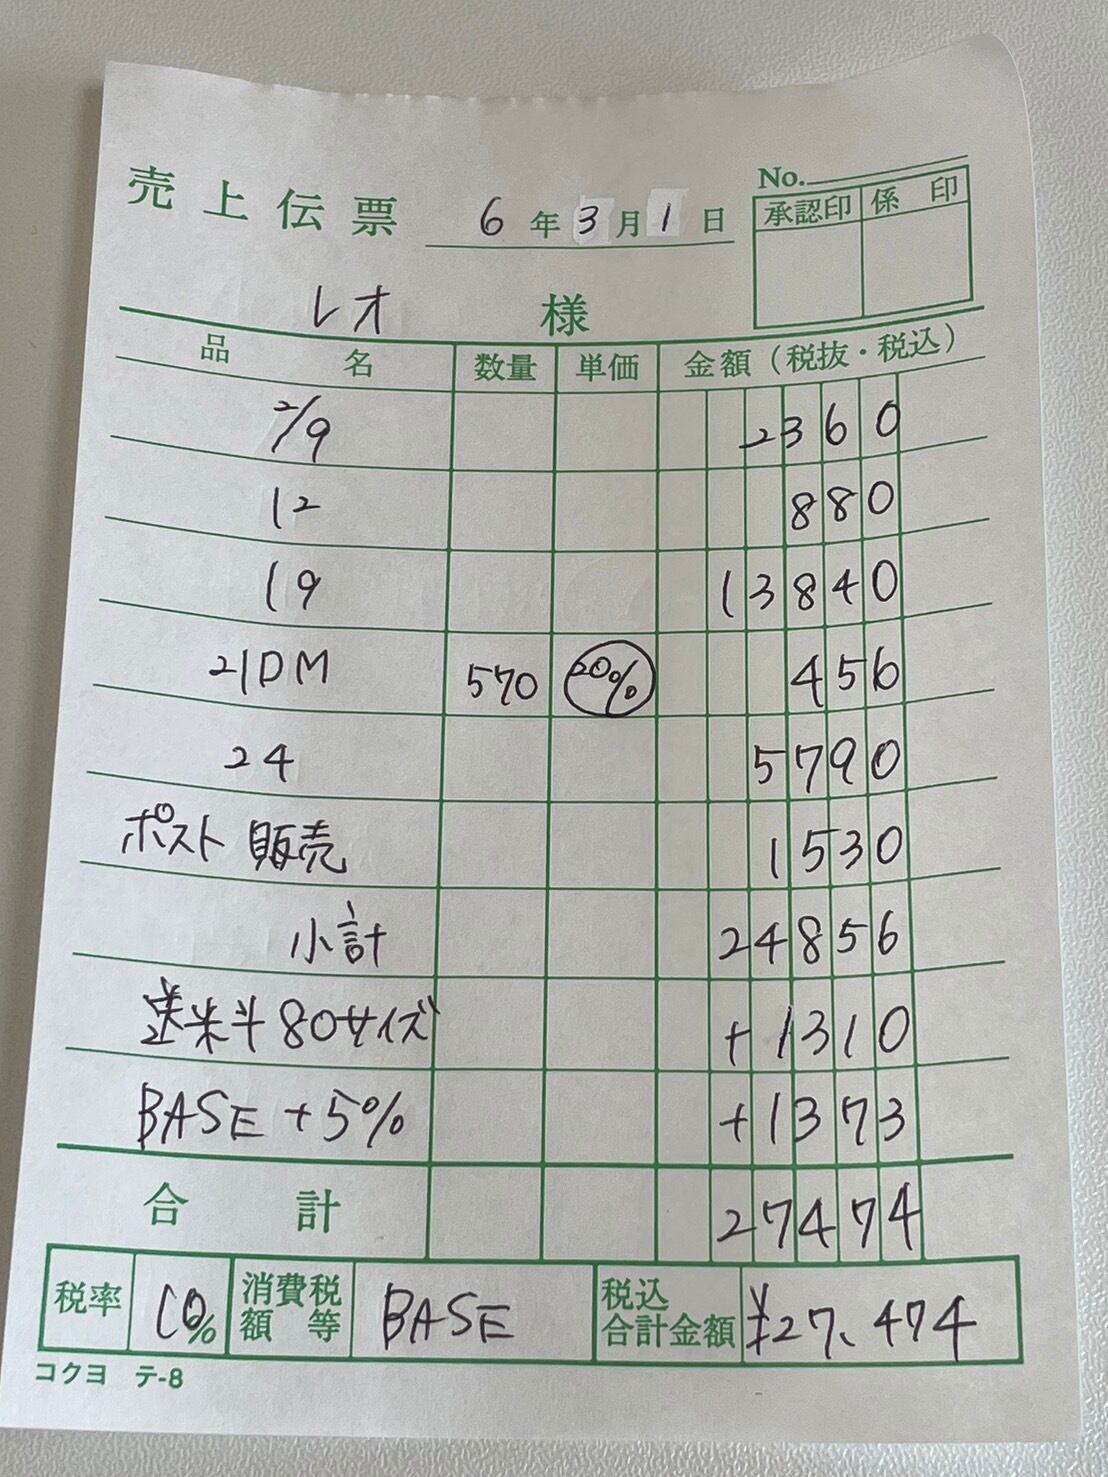 No.
売上伝票 6年3月1日
承認印 係印
レオ 様
品名 数量 単価 金額(税抜・税込)
2/9 2360
12 880
19 13840
21DM 570 20% 456
24 5790
ポスト販売 1530
小計 24856
送料80サイズ +1310
BASE+5% +1373
合計 27474
税率 10% 消費税額等 BASE 税込合計金額 ¥27,474
コクヨ テ-8